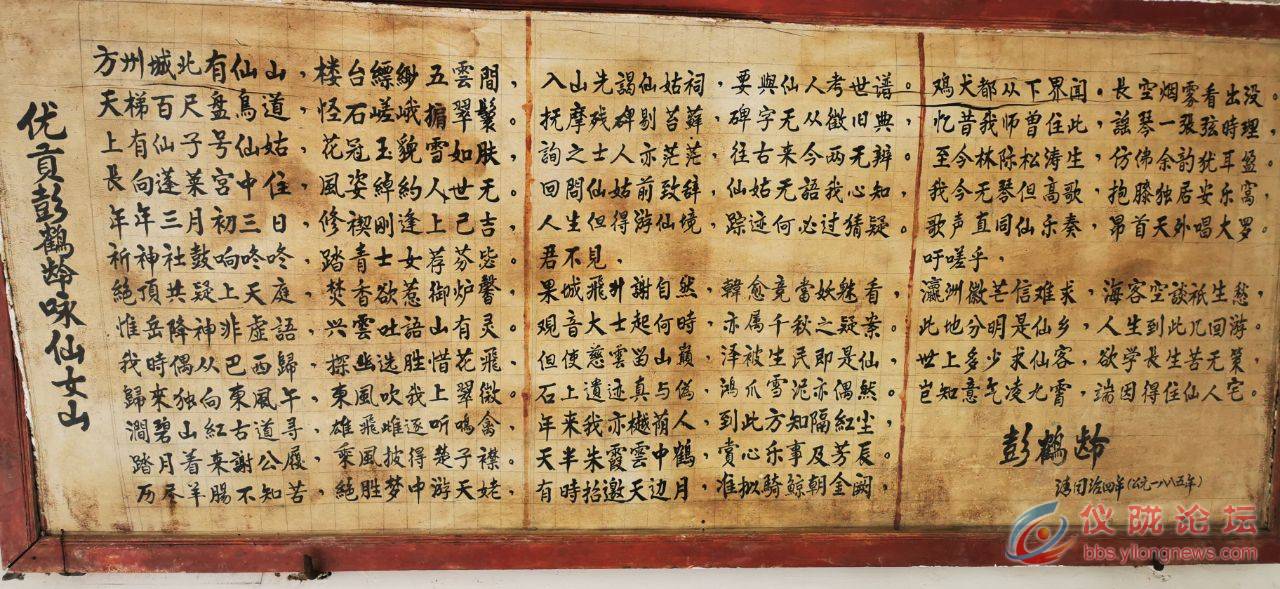 优贡彭鹤龄咏仙女山
方州城北有仙山，楼台縹缈五雲間，
天梯百尺盘鳥道，怪石嵯峨掮翠鬟。
上有仙子号仙姑，花冠玉貌雪如肤，
長向蓬莱宫中住，風姿綽約人世无。
年年三月初三日，修禊剛逢上己吉，
祈神社鼓响咚咚，踏青士女荐芬苾。
絕頂共疑上天庭，焚香欲惹御炉馨，
惟岳降神非虚語，兴雲吐語山有灵。
我時偶从巴西歸，探幽选胜惜花飛，
歸来独向東風午，東風吹我上翠微。
澗碧山紅古道寻，雄飛雌逐听鳴禽，
踏月着来謝公屐，乘風披得楚子襟。
历尽羊腸不知苦，絕胜梦中游天姥，
入山先謁仙姑祠，要與仙人考世谱。
抚摩残碑剔苔蘚，碑字无从徵旧典，
詢之士人亦茫茫，往古来今两无辨。
回問仙姑前致辞，仙姑无語我心知，
人生但得游仙境，踪迹何必过猜疑。
君不見，
果城飛升謝自然，韓愈竟當妖魅看，
观音大士起何時，亦属千秋之疑案。
但使慈雲留山巅，泽被生民即是仙，
石上遺迹真与偽，鴻爪雪泥亦偶然。
年来我亦樾荫人，到此方知隔紅尘，
天半朱霞雲中鶴，赏心乐事及芳辰。
有時招邀天边月，准拟騎鲸朝金闕，
鸡犬都从下界闻。長空烟雾看出没。
忆昔我师曾住此，謡琴一張弦時理，
至今林际松涛生，仿佛余韵犹耳盈
我今无琴但高歌，抱膝独居安乐窩
歌声直同仙乐奏，昂首天外唱大罗。
吁嗟乎，
瀛洲微芒信难求，海客空談祇生愁，
此地分明是仙乡，人生到此几回游。
世上多少求仙客，欲学長生苦无策
岂知意气凌九霄，端因得住仙人宅。
彭鶴龄
清同治四年（公元一八八五年）
仪陇论坛
bbs.yilongnews.com